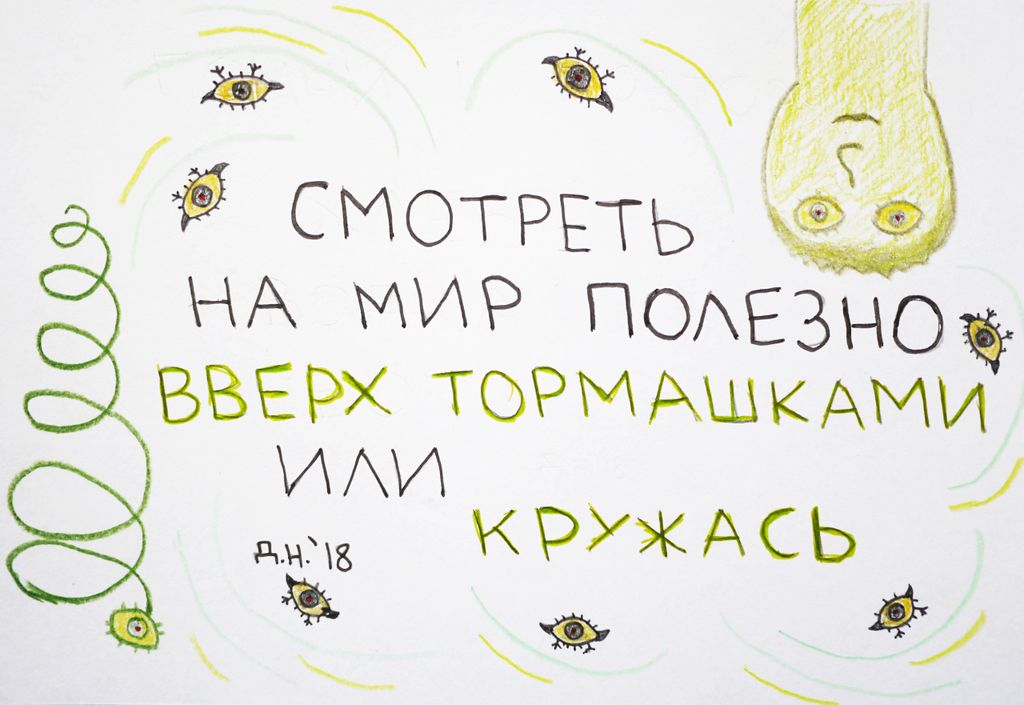 СМОТРЕТЬ
НА МИР ПОЛЕЗНО
ВВЕРХ ТОРМАШКАМИ
ИЛИ
КРУЖАСЬ
Д.Н.'18